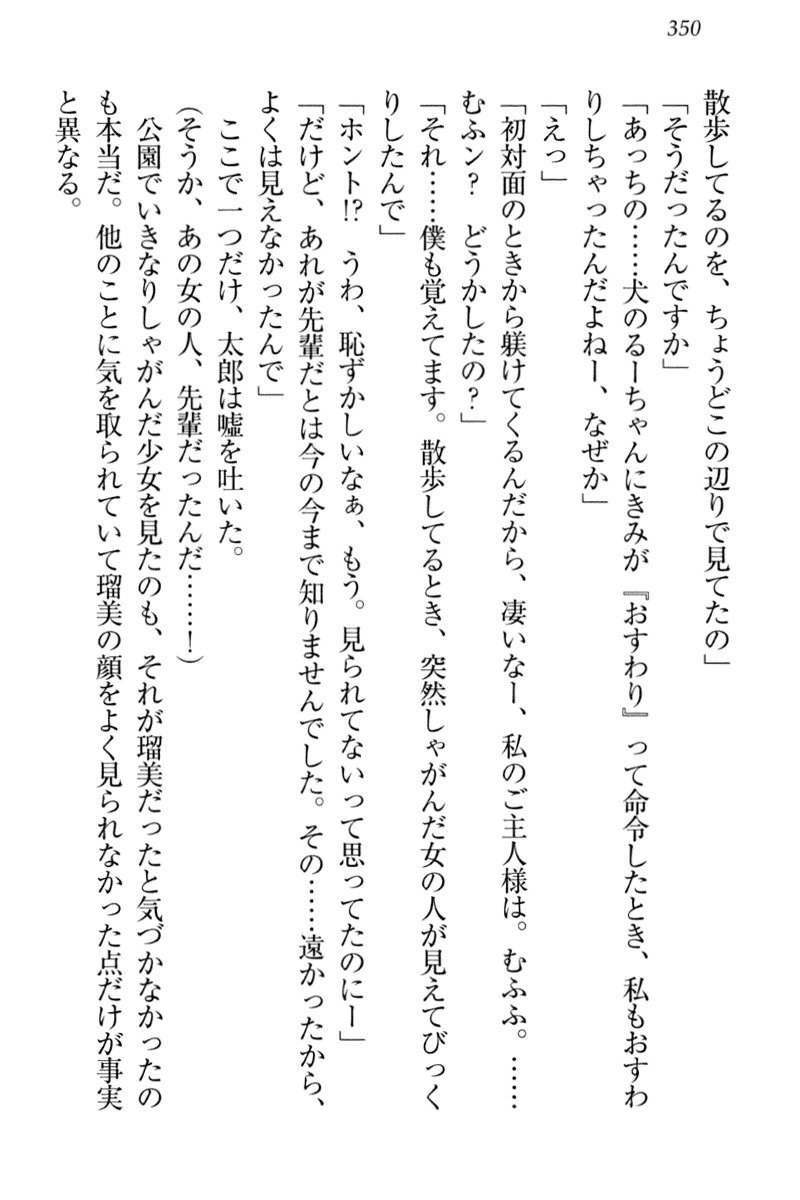 350
散歩してるのを、ちょうどこの辺りで見てたの」
「そうだったんですか」
「あっちの……犬のるーちゃんにきみが『おすわり』って命令したとき、私もおすわ
りしちゃったんだよねー、なぜか」
「えっ」
「初対面のときから躾けてくるんだから、凄いなー、私のご主人様は。むふふ。……
むふン？　どうかしたの？」
「それ……僕も覚えてます。散歩してるとき、突然しゃがんだ女の人が見えてびっく
りしたんで」
「ホント!?　うわ、恥ずかしいなぁ、もう。見られてないって思ってたのにー」
「だけど、あれが先輩だとは今の今まで知りませんでした。その……遠かったから、
よくは見えなかったんで」
ここで一つだけ、太郎は嘘を吐いた。
（そうか、あの女の人、先輩だったんだ……！）
公園でいきなりしゃがんだ少女を見たのも、それが瑠美だったと気づかなかったの
も本当だ。他のことに気を取られていて瑠美の顔をよく見られなかった点だけが事実
と異なる。